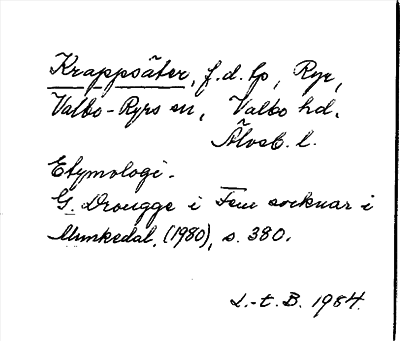 Krappsäter, f.d. lp, Ryr,
Valbo-Ryrs sn, Valbo hd.
Älvsb. l.
Etymologi.
G. Drougge i Fem socknar i
Munkedal, (1980), s. 380.
L.-t. B. 1984.